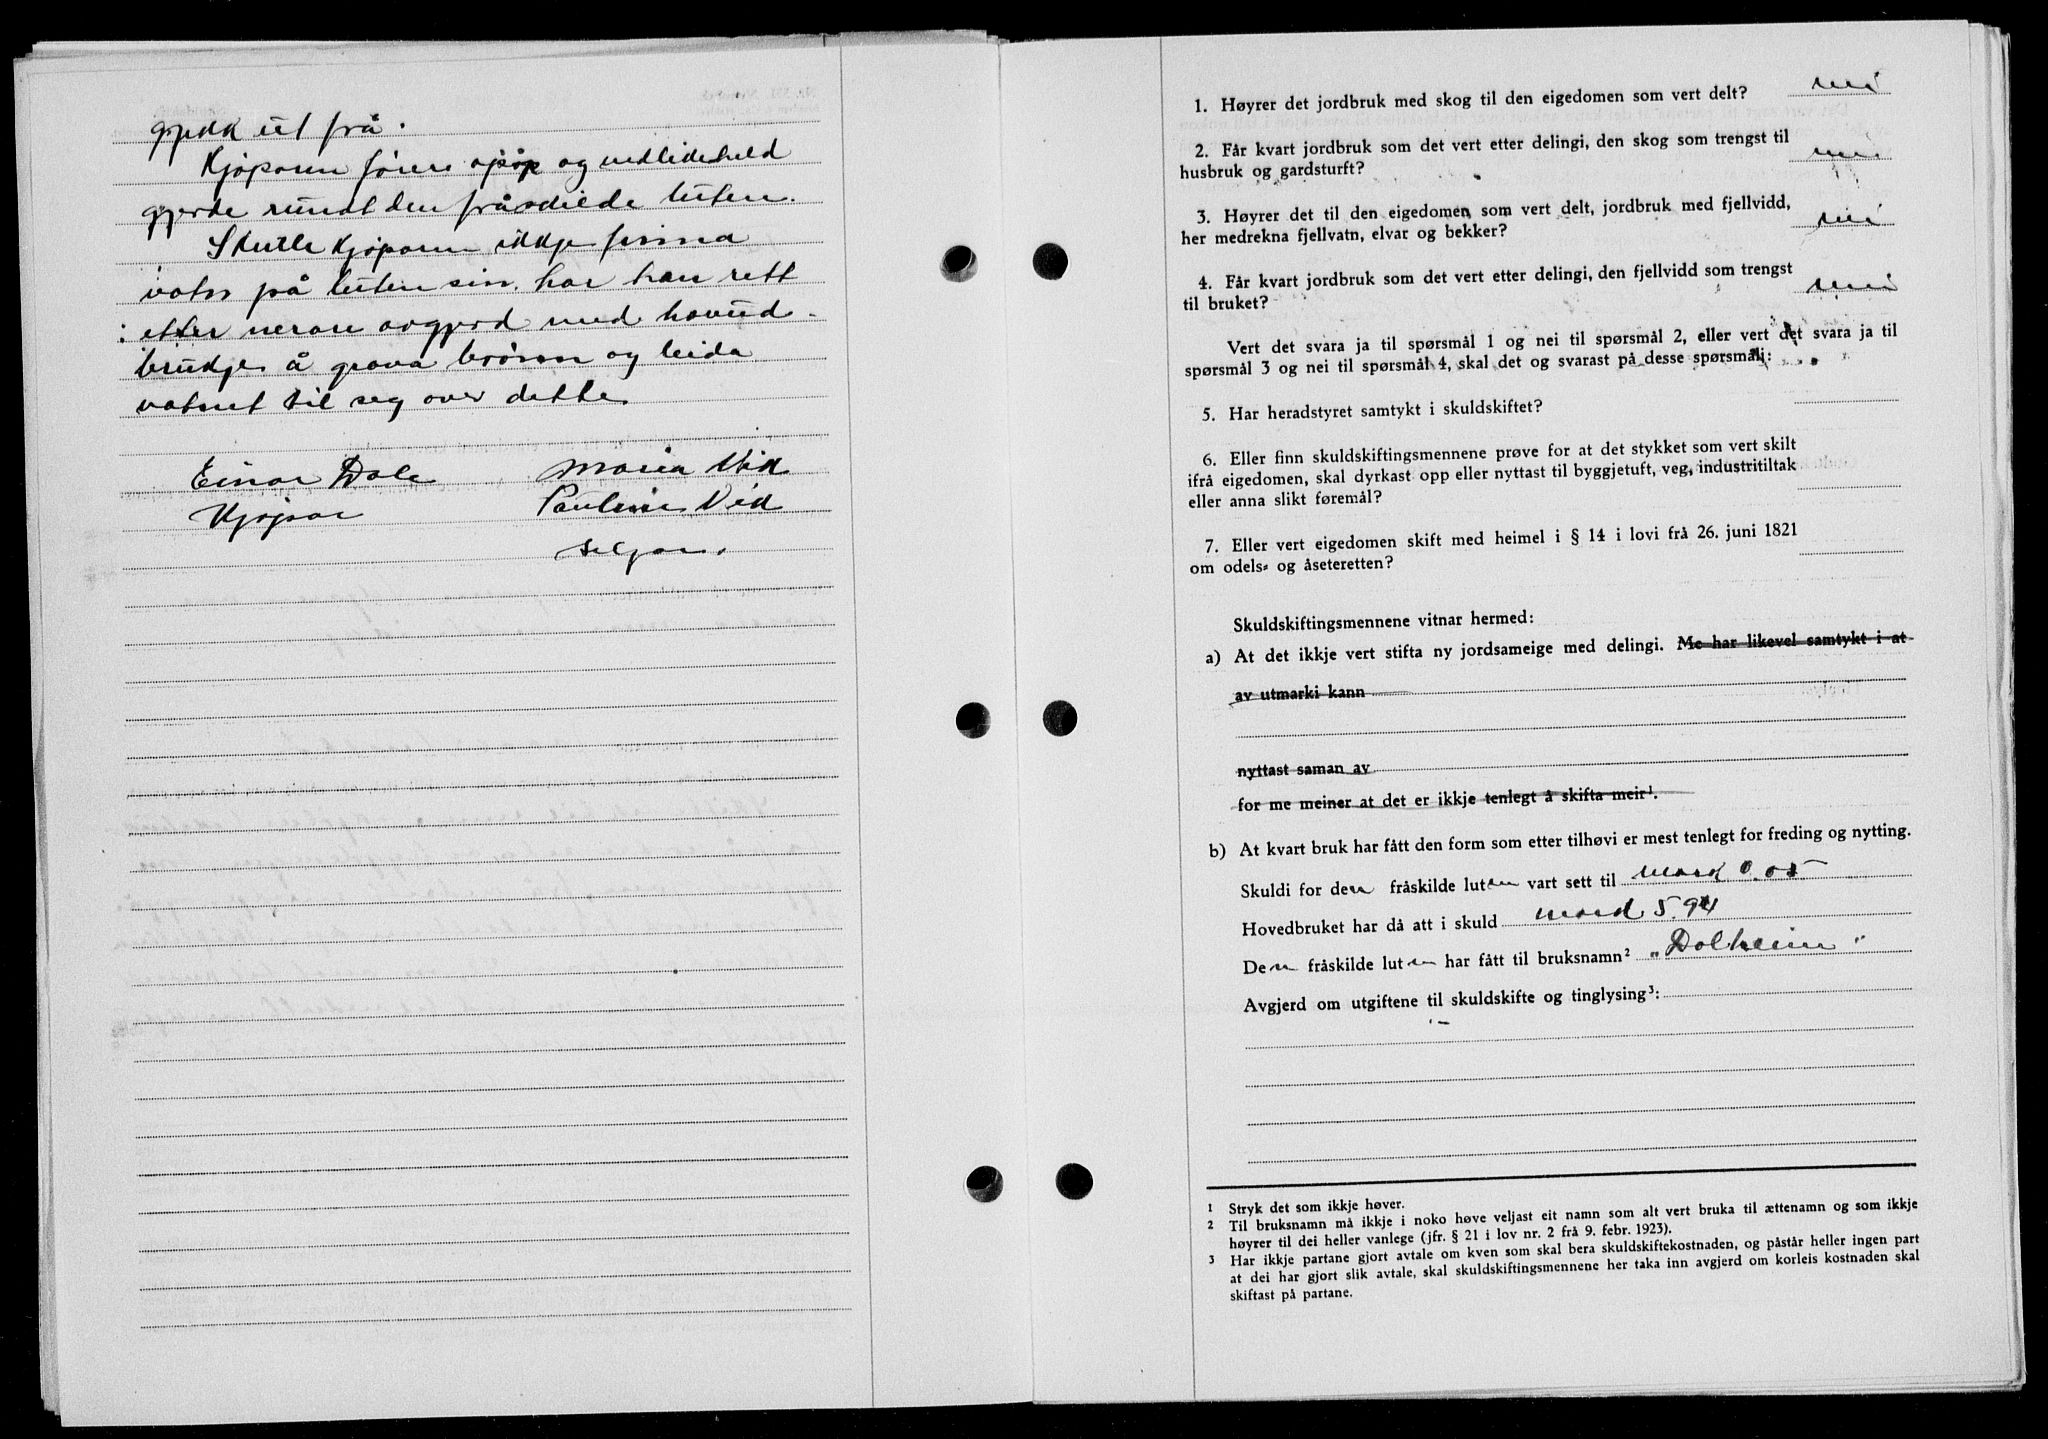 gjekk ut frå.
Kjøparen sører opp og vedlikeheld
gjerde rundt den fråskilde luten.
Skulle kjøparen ikkje finna
vatn på luten sin, har han rett
etter nerare avgjerd med hovud-
brukje å grava brønn og leida
vatnet til seg over dette.
Einar Dale Maria Vik
Kjøpar Pauline Vik
seljar.
1. Høyrer det jordbruk med skog til den eigedomen som vert delt? nei
2. Får kvart jordbruk som det vert etter delingi, den skog som trengst til
husbruk og gardsturft? nei
3. Høyrer det til den eigedomen som vert delt, jordbruk med fjellvidd,
her medrekna fjellvatn, elvar og bekker? nei
4. Får kvart jordbruk som det vert etter delingi, den fjellvidd som trengst
til bruket? nei
Vert det svara ja til spørsmål 1 og nei til spørsmål 2, eller vert det svara ja til
spørsmål 3 og nei til spørsmål 4, skal det og svarast på desse spørsmål:
5. Har heradstyret samtykt i skuldskiftet?
6. Eller finn skuldskiftingsmennene prøve for at det stykket som vert skilt
ifrå eigedomen, skal dyrkast opp eller nyttast til byggjetuft, veg, industritiltak
eller anna slikt føremål?
7. Eller vert eigedomen skift med heimel i § 14 i lovi frå 26. juni 1821
om odels- og åseteretten?
Skuldskiftingsmennene vitnar hermed:
a) At det ikkje vert stifta ny jordsameige med delingi. Me har likevel samtykt i at
av utmarki kann
nyttast saman av
for me meiner at det er ikkje tenlegt å skifta meir¹.
b) At kvart bruk har fått den form som etter tilhøvi er mest tenlegt for freding og nytting.
Skuldi for den fråskilde luten vart sett til mark 0.05
Hovedbruket har då att i skuld mark 5.94
Den fråskilde luten har fått til bruksnamn² „Dalheim"
Avgjerd om utgiftene til skuldskifte og tinglysing³:
1 Stryk det som ikkje høver.
2 Til bruksnamn må ikkje i noko høve veljast eit namn som alt vert bruka til ættenamn og som ikkje
høyrer til dei heller vanlege (jfr. § 21 i lov nr. 2 frå 9. febr. 1923).
3 Har ikkje partane gjort avtale om kven som skal bera skuldskiftekostnaden, og påstår heller ingen part
at dei har gjort slik avtale, skal skuldskiftingsmennene her taka inn avgjerd om korleis kostnaden skal
skiftast på partane.